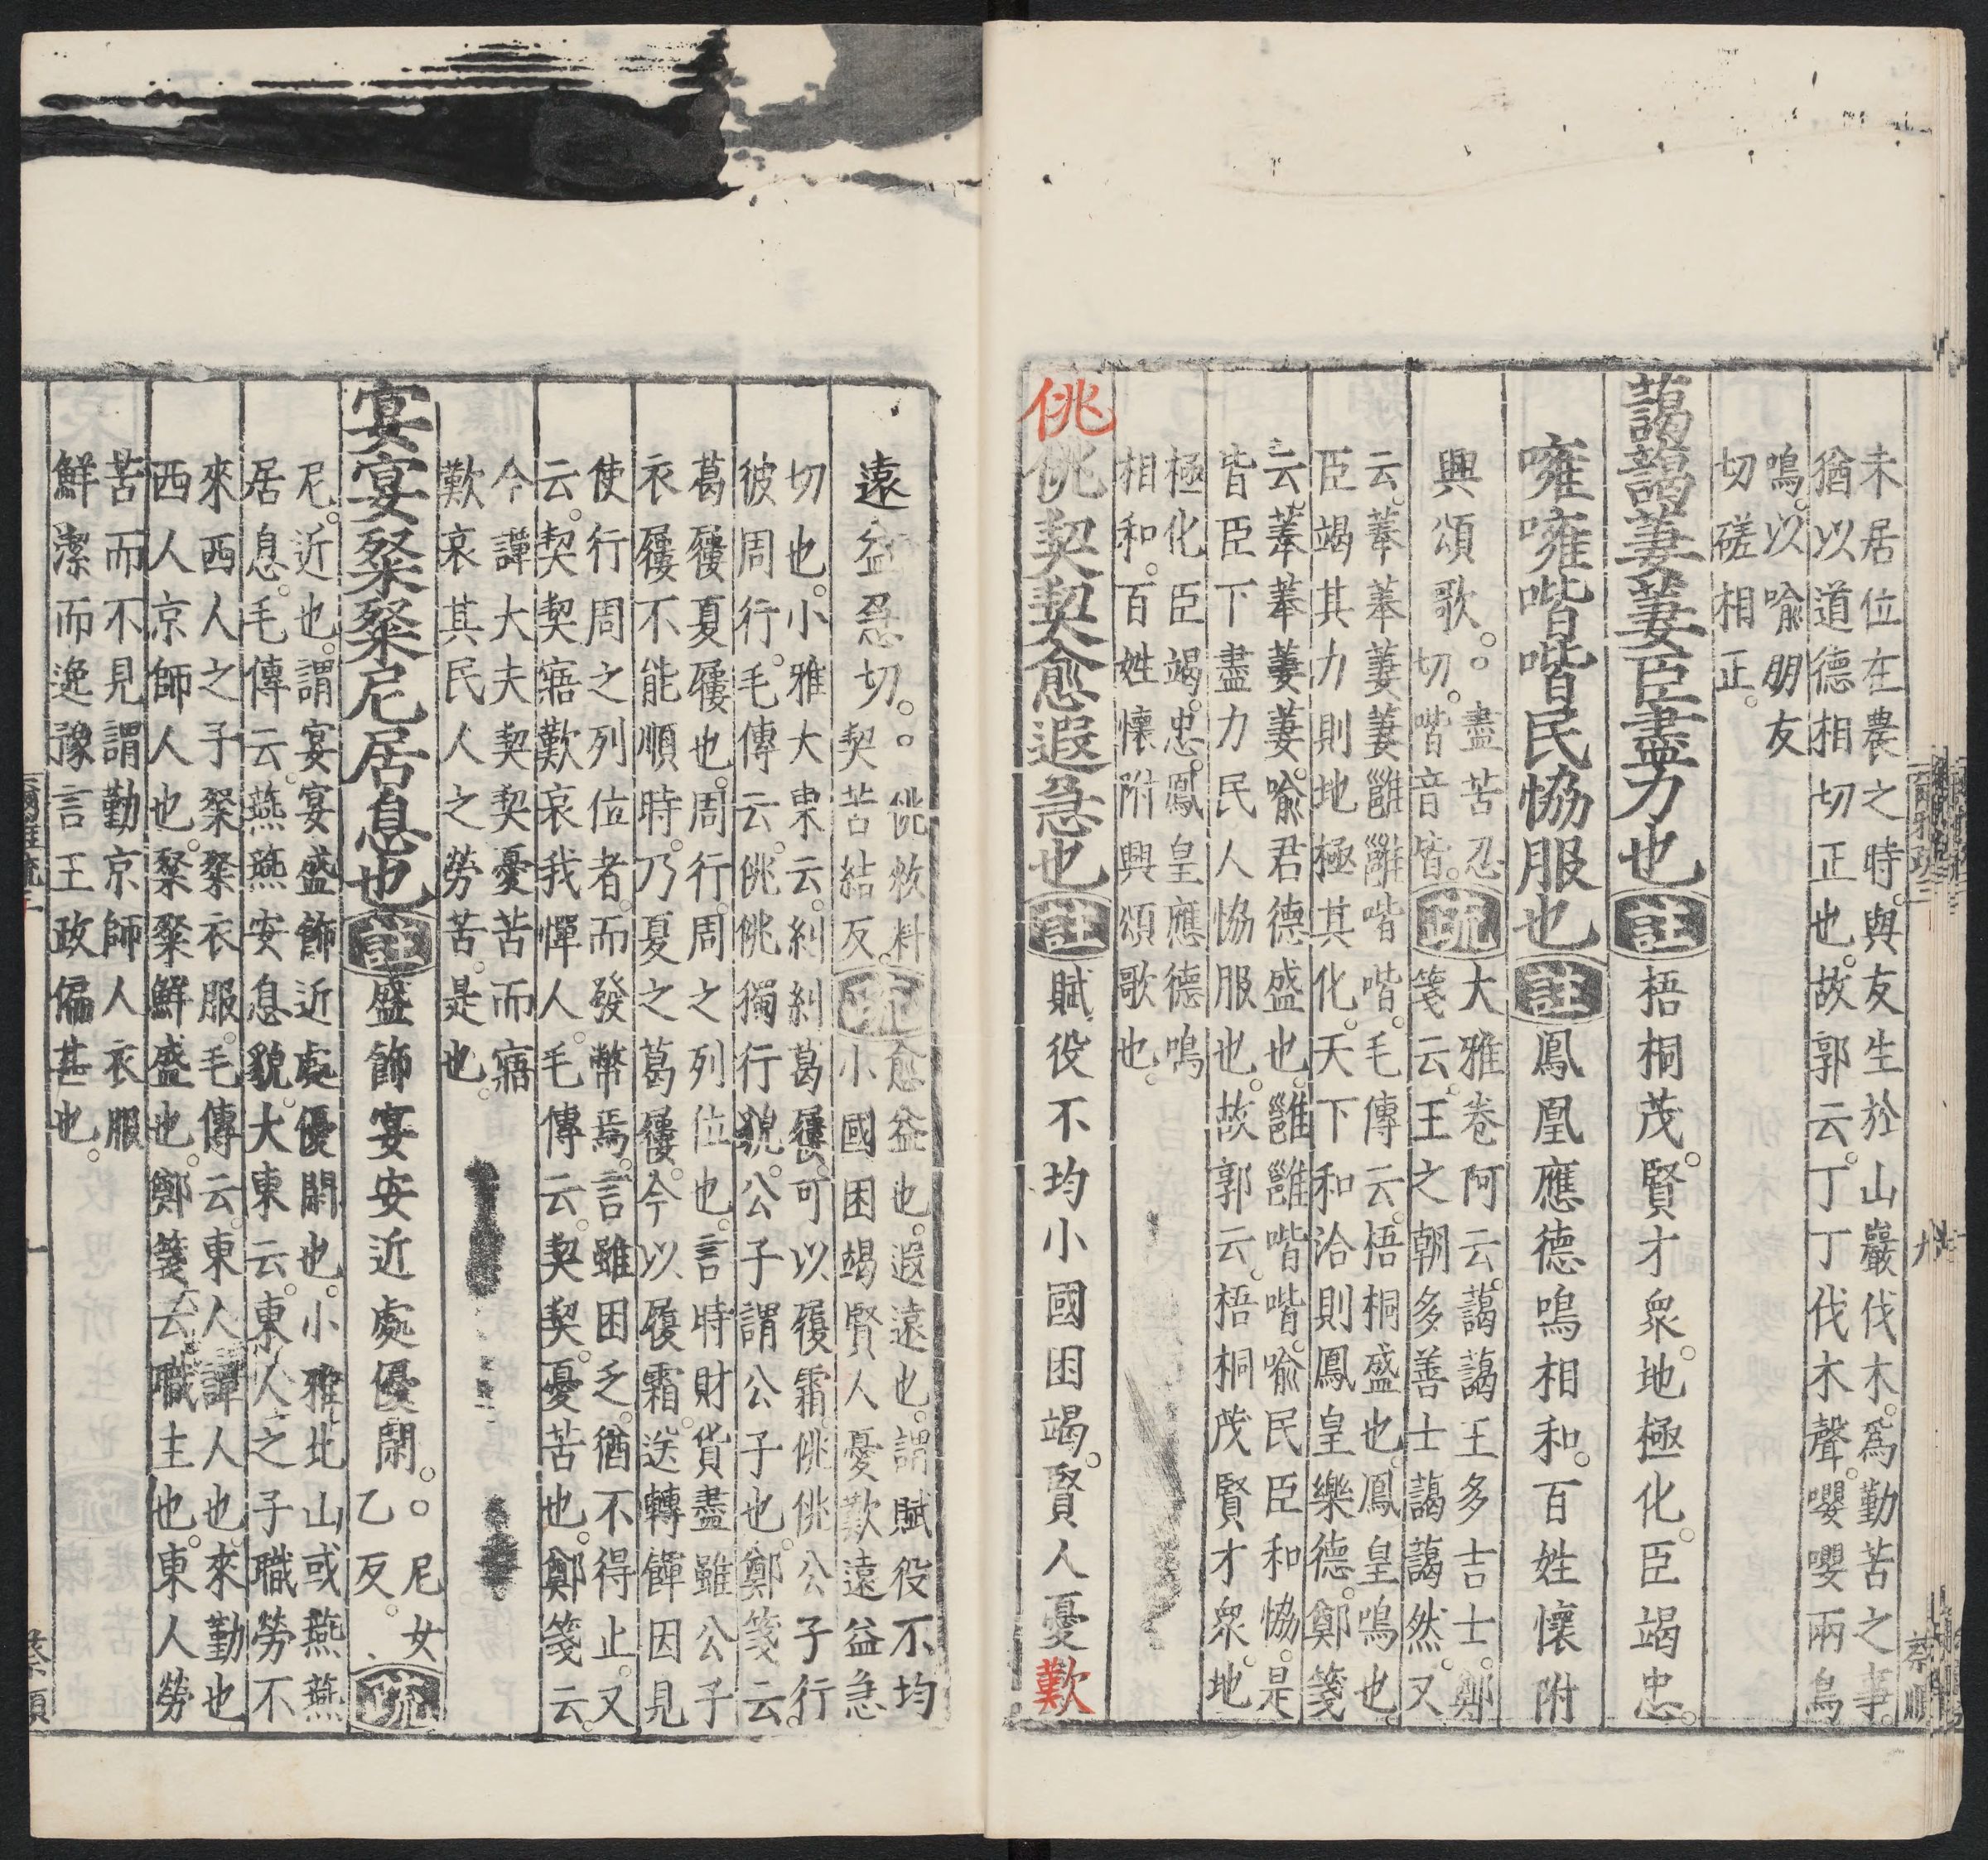 未居位在農之時與友生於山巖伐木爲勤苦之事
猶以道德相切正也故郭云丁丁伐木聲嚶嚶兩鳥
鳴以喻朋友
切磋相正
藹藹萋萋臣盡力也註梧桐茂賢才衆地極化臣竭忠
噰噰喈喈民恊服也註鳳凰應德鳴相和百姓懷附
興頌歌
盡苦忍
切喈音皆
疏
大雅卷阿云藹藹王多吉士鄭
箋云王之朝多善士藹藹然又
云菶菶萋萋雝雝喈喈毛傳云梧桐盛也鳳皇鳴也
臣竭其力則地極其化天下和洽則鳳皇樂德鄭箋
云菶菶萋萋喻君德盛也雝雝喈喈喻民臣和恊是
皆臣下盡力民人恊服也故郭云梧桐茂賢才衆地
極化臣竭忠鳳皇應德鳴
相和百姓懷附興頌歌也
佻佻契契愈遐急也註賦役不均小國困竭賢人憂歎
遠益急切
佻敉料
契苦結反
疏
愈益也遐遠也謂賦役不均
小國困竭賢人憂歎遠益急
切也小雅大東云糾糾葛屨可以履霜佻佻公子行
彼周行毛傳云佻佻獨行貌公子謂公子也鄭箋云
葛屨夏屨也周行周之列位也言時財貨盡雖公子
衣屨不能順時乃夏之葛屨今以履霜送轉餫因見
使行周之列位者而發幣焉言雖困乏猶不得止又
云契契寤歎哀我憚人毛傳云契契憂苦也鄭箋云
今譚大夫契契憂苦而寤
歎哀其民人之勞苦是也
宴宴粲粲尼居息也註盛飾宴安近處優閑
尼女
乙反
疏
尼近也謂宴宴盛飾近處優閑也小雅北山或燕燕
居息毛傳云燕燕安息貌大東云東人之子職勞不
來西人之子粲粲衣服毛傳云東人譚人也來勤也
西人京師人也粲粲鮮盛也鄭箋云職主也東人勞
苦而不見謂勤京師人衣服
鮮潔而逸豫言王政偏甚也